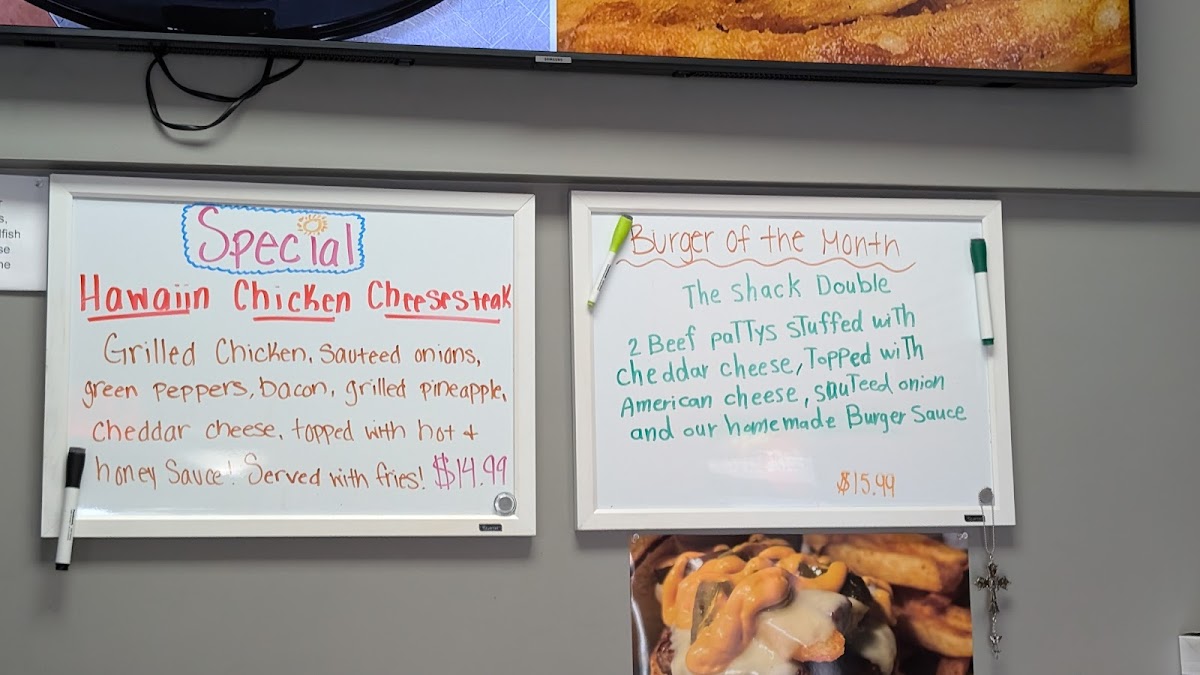 SAMSUNG
s,
lfish
se
ne
Special
Hawaiin Chicken Cheesesteak
Grilled Chicken, Sauteed onions,
green peppers, bacon, grilled pineapple,
cheddar cheese, topped with hot +
honey Sauce! Served with fries! $14.99
Burger of the Month
The Shack Double
2 Beef pattys stuffed with
cheddar cheese, Topped with
American cheese, sauteed onion
and our homemade Burger Sauce
$15.99